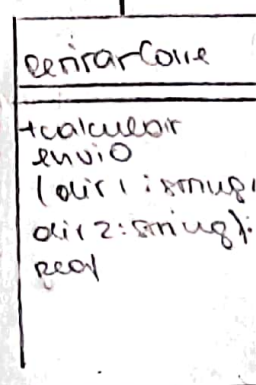 RetirarCorre
+calcular
envio
(dir1:string,
dir2:string):
real